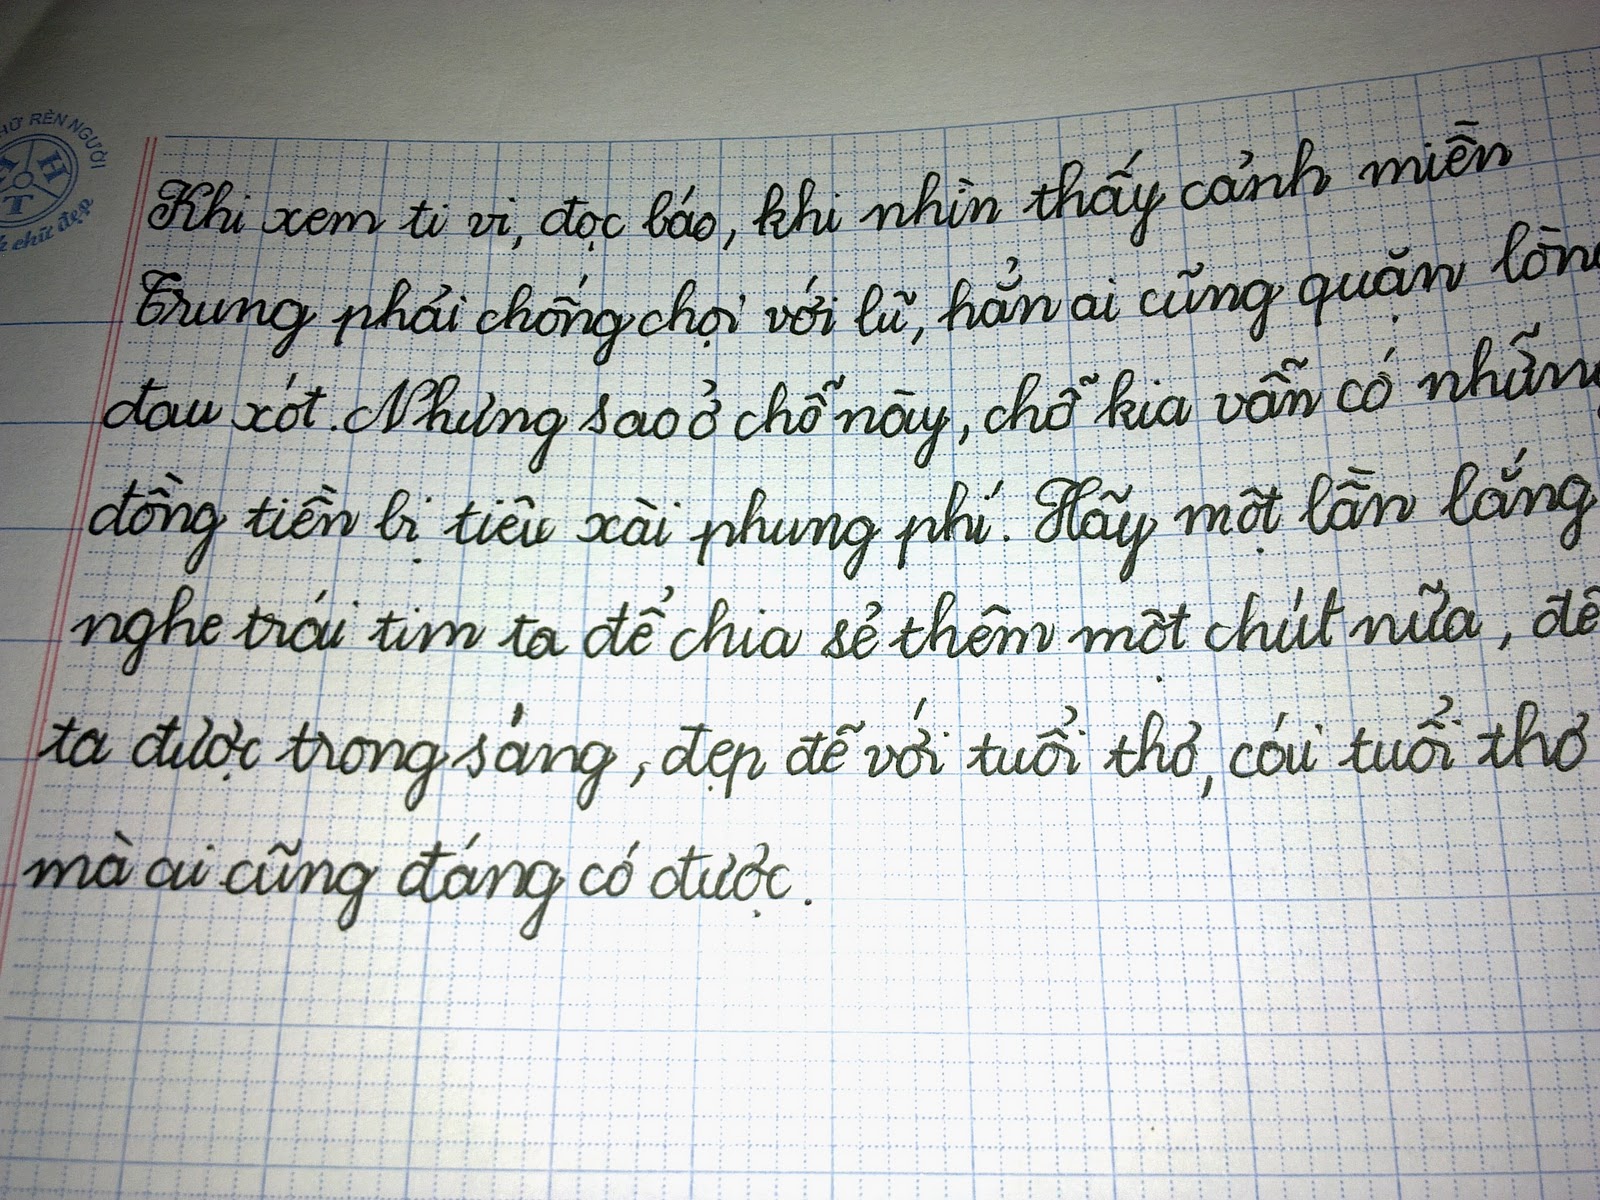 HƠ RÈN NGƯỜI
M H T
chữ đẹp
Khi xem ti vi, đọc báo, khi nhìn thấy cảnh miền
Trung phải chống chọi với lũ, hẳn ai cũng quặn lòng
đau xót. Nhưng sao ở chỗ này, chỗ kia vẫn có những
đồng tiền bị tiêu xài phung phí. Hãy một lần lắng
nghe trái tim ta để chia sẻ thêm một chút nữa, để
ta được trong sáng, đẹp đẽ với tuổi thơ, cái tuổi thơ
mà ai cũng đáng có được.